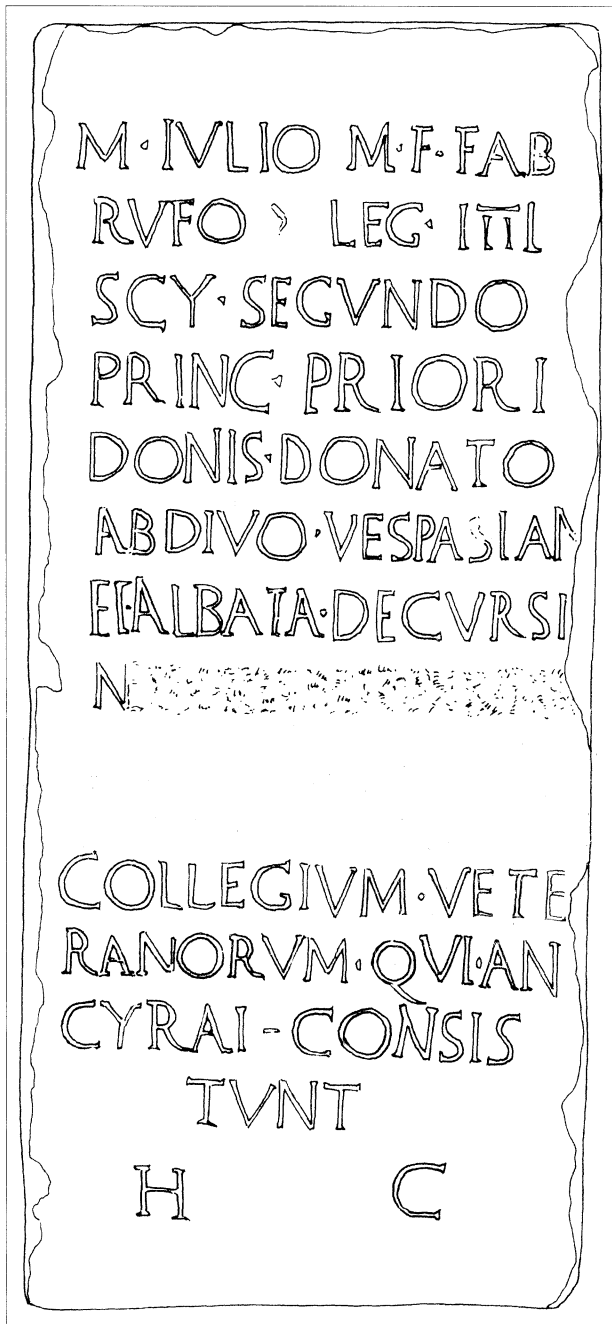 M · IVLIO M · F · FAB
RVFO > LEG · IIII
SCY · SEGVNDO
PRINC · PRIORI
DONIS · DONATO
ABDIVO · VESPASIAN
ET · ALBATA · DECVRSI
N
COLLEGIVM · VETE
RANORVM · QVI · AN
CYRAI - CONSIS
TVNT
H C